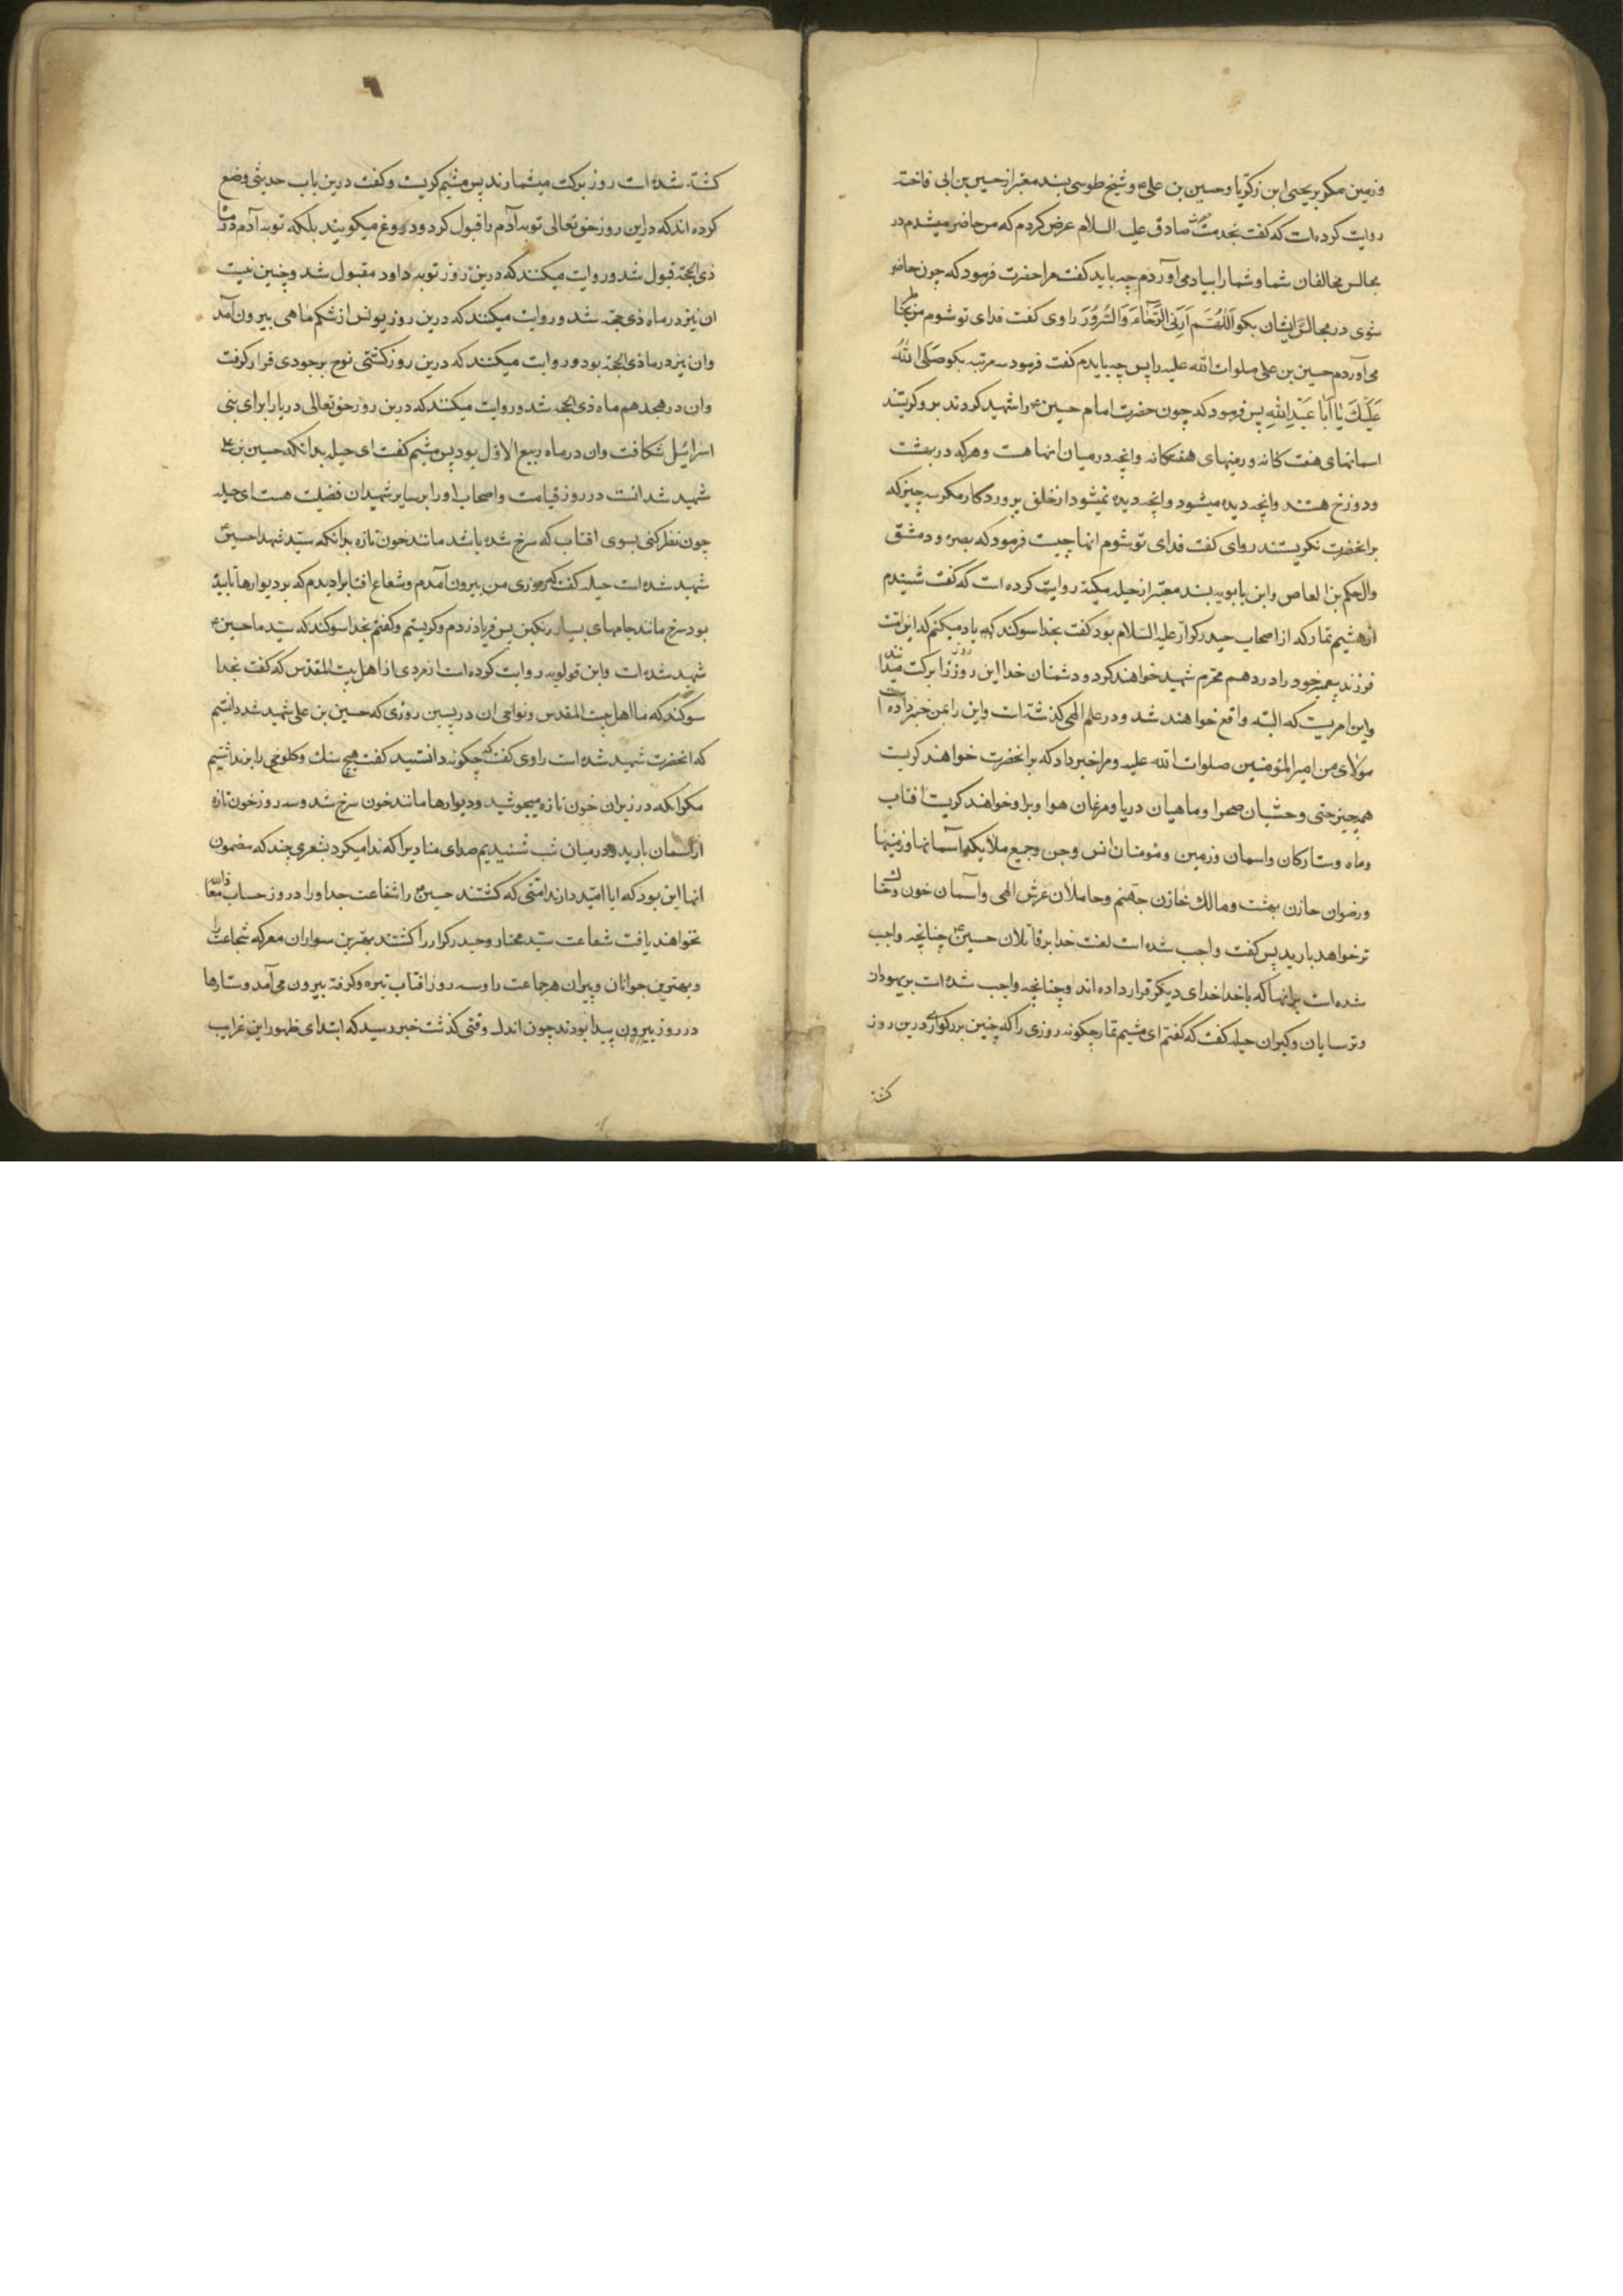 وزمین مکر بر یحیی ابن زکریا وحسین بن علیؑ وشیخ طوسی بسند معتبر از حسین بن ابی فاخته
روایت کرده است که کفت بخدمت حضرت صادق علیه السلام عرض کردم که من حاضر میشدم در
مجالس مخالفان شما وشما را بیاد می آوردم چه باید کفت مرا حضرت فرمود که چون حاضر
شوی در مجالس ایشان بکو اَللّهُمَّ اَرِنِی الرَّخٰاءَ وَالسُّرُورَ راوی کفت فدای تو شوم من بخاطر
می آوردم حسین بن علی صلوات الله علیه را پس چه بایدم کفت فرمود سه مرتبه بکو صَلَّی اللهُ
عَلَیْکَ یٰا اَبٰا عَبْدِاللهِ پس فرمود که چون حضرت امام حسینؑ را شهید کردند بر و کریستند
اسمانهای هفت کانه ورمینهای هفتکانه وانچه در میان انها هست وهرکه در بهشت
ودوزخ هستند وانچه دیده میشود وانچه دیده نمیشود از خلق پروردکار مکر سه چیز که
بر انحضرت نکریستند روای کفت فدای تو شوم انها چیست فرمود که بصره ودمشق
وال حکم بن العاص وابن بابویه بسند معتبر از حیله مکیه روایت کرده است که کفت شنیدم
از میثم تمار که از اصحاب حیدر کرار علیه السلام بود کفت بخدا سوکند که یاد میکنم که این امت
فرزند پیغمبر خود را در دهم محرم شهید خواهند کرد ودشمنان خدا این روز را برکت میدانند
واین امریست که البته واقع خواهند شد ودر علم الهی کذشته است واین را بمن خبر داده است
مولای من امیرالمؤمنین صلوات الله علیه ومرا خبر داد که بر انحضرت خواهند کریست
همچیز حتی وحشیان صحرا وماهیان دریا ومرغان هوا وبر او خواهند کریست افتاب
وماه وستارکان واسمان وزمین ومؤمنان انس وجن وجمیع ملایکه آسمانها وزمینها
ورضوان خازن بهشت ومالک خازن جهنم وحاملان عرش الهی وآسمان خون وخاکستر
تر خواهد بارید پس کفت واجب شده است لعنت خدا بر قاتلان حسینؑ چنانچه واجب
شده است بر انها که با خدا خدای دیکر قرار داده اند وچنانچه واجب شده است بر یهودان
وترسایان وکبران حیله کفت که کفتم ای میثم تمار چکونه روزی را که چنین بزرکواری درین روز
کشته
کشته شده است روز برکت میشمارند پس میثم کریست وکفت درین باب حدیثی وضع
کرده اند که در این روز حق تعالی توبه آدم را قبول کرد ودروغ میکویند بلکه توبه آدم در ماه
ذی الحجه قبول شد وروایت میکنند که درین روز توبه داود مقبول شد وچنین نیست
ان نیز در ماه ذی حجه شد وروایت میکنند که درین روز یونس از شکم ماهی بیرون آمد
وان نیز در ماه ذی الحجه بود وروایت میکنند که درین روز کشتی نوح بر جودی قرار کرفت
وان در هجدهم ماه ذی الحجه شد وروایت میکنند که درین روز حق تعالی دریا را برای بنی
اسرائیل شکافت وان در ماه ربیع الاول بود پس میثم کفت ای حیله بدانکه حسین بن علی
شهید شدانست در روز قیامت واصحاب او را بر سایر شهیدان فضلیت هست ای حیله
چون نظر کنی بسوی افتاب که سرخ شده باشد مانند خون تازه بدانکه سید شهدا حسینؑ
شهید شده است حیله کفت که روزی من بیرون آمدم وشعاع افتابرا دیدم که بر دیوارها تابیده
بود سرخ مانند جامهای بسیار رنکین پس فریاد زدم وکریستم وکفتم بخدا سوکند که سید ما حسینؑ
شهید شده است وابن قولویه روایت کرده است از مردی از اهل بیت المقدس که کفت بخدا
سوکند که ما اهل بیت المقدس ونواحی ان در پسین روزی که حسین بن علی شهید شد دانستیم
که انحضرت شهید شده است راوی کفت که چکونه دانستید کفت هیچ سنک وکلوخی را برنداشتیم
مکر انکه در زیر ان خون تازه میجوشید ودیوارها مانند خون سرخ شد وسه روز خون تازه
از اسمان بارید ودر میان شب شنیدیم صدای منادیرا که ندا میکرد بشعری چند که مضمون
انها این بود که ایا امید دارند امتی که کشتند حسینؑ را شفاعت جد او را در روز حساب معاذالله
نخواهند یافت شفاعت سید مختار وحیدر کرار را کشتند بهترین سواران معرکه شجاعت را
وبهترین جوانان وپیران هر جماعت را وسه روز افتاب تیره وکرفته بیرون می آمد وستارها
در روز بیرون پیدا بودند چون اندک وقتی کذشت خبر رسید که ابتدای ظهور این غرایب